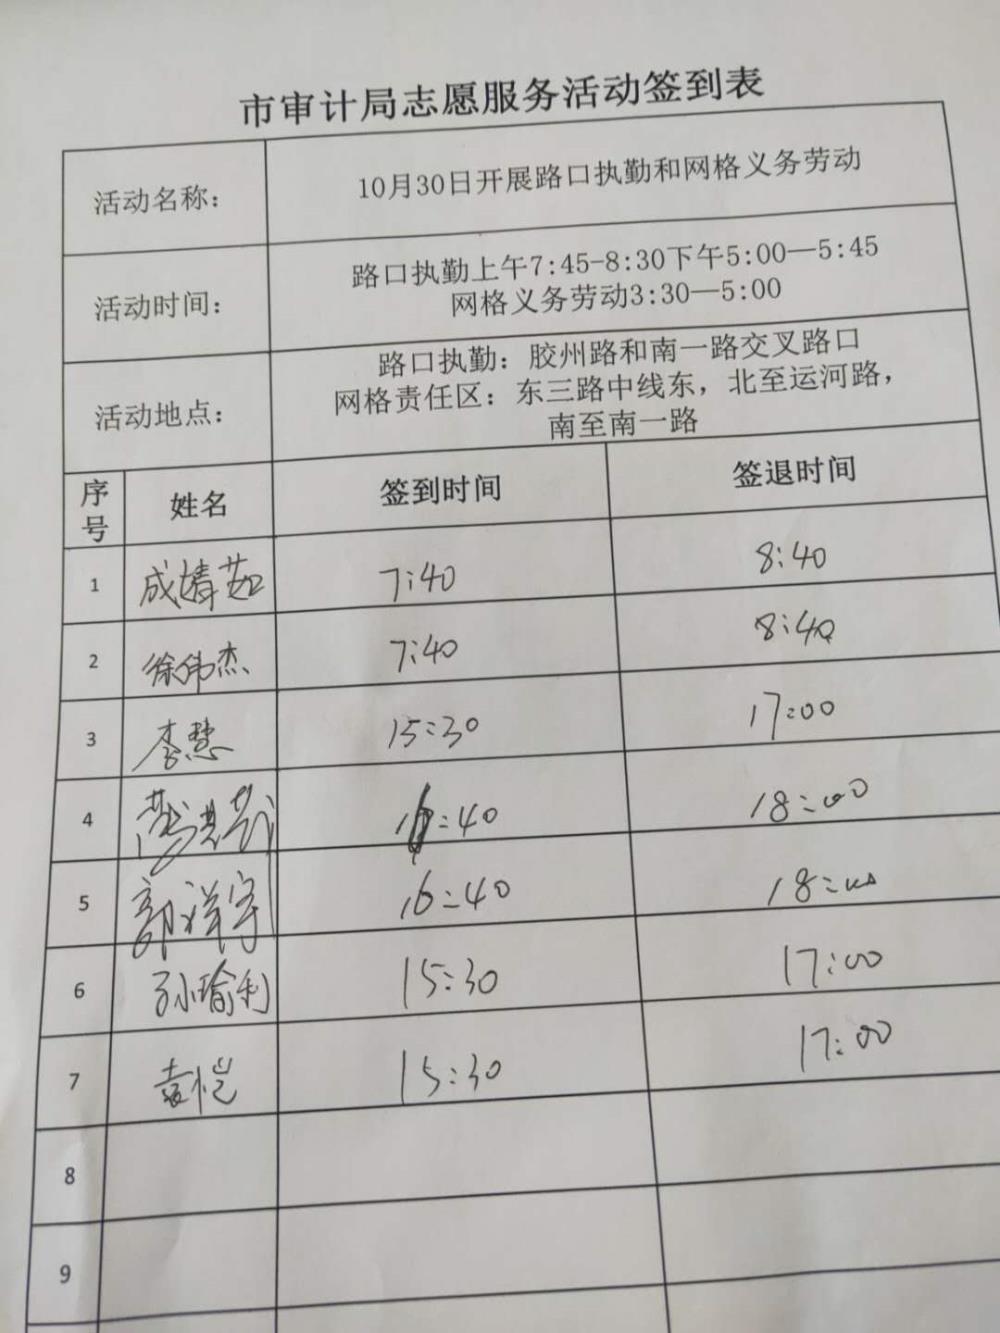 市审计局志愿服务活动签到表
活动名称： 10月30日开展路口执勤和网格义务劳动
活动时间： 路口执勤上午7:45-8:30下午5:00—5:45
网格义务劳动3:30—5:00
活动地点： 路口执勤：胶州路和南一路交叉路口
网格责任区：东三路中线东，北至运河路，
南至南一路
序号 姓名 签到时间 签退时间
1 成婧茹 7:40 8:40
2 徐伟杰 7:40 8:40
3 李慧 15:30 17:00
4 16:40 18:00
5 郭祥宇 16:40 18:00
6 孙瑜利 15:30 17:00
7 袁恺 15:30 17:00
8
9